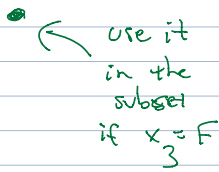 use it
in the
subset
if x₃ = F